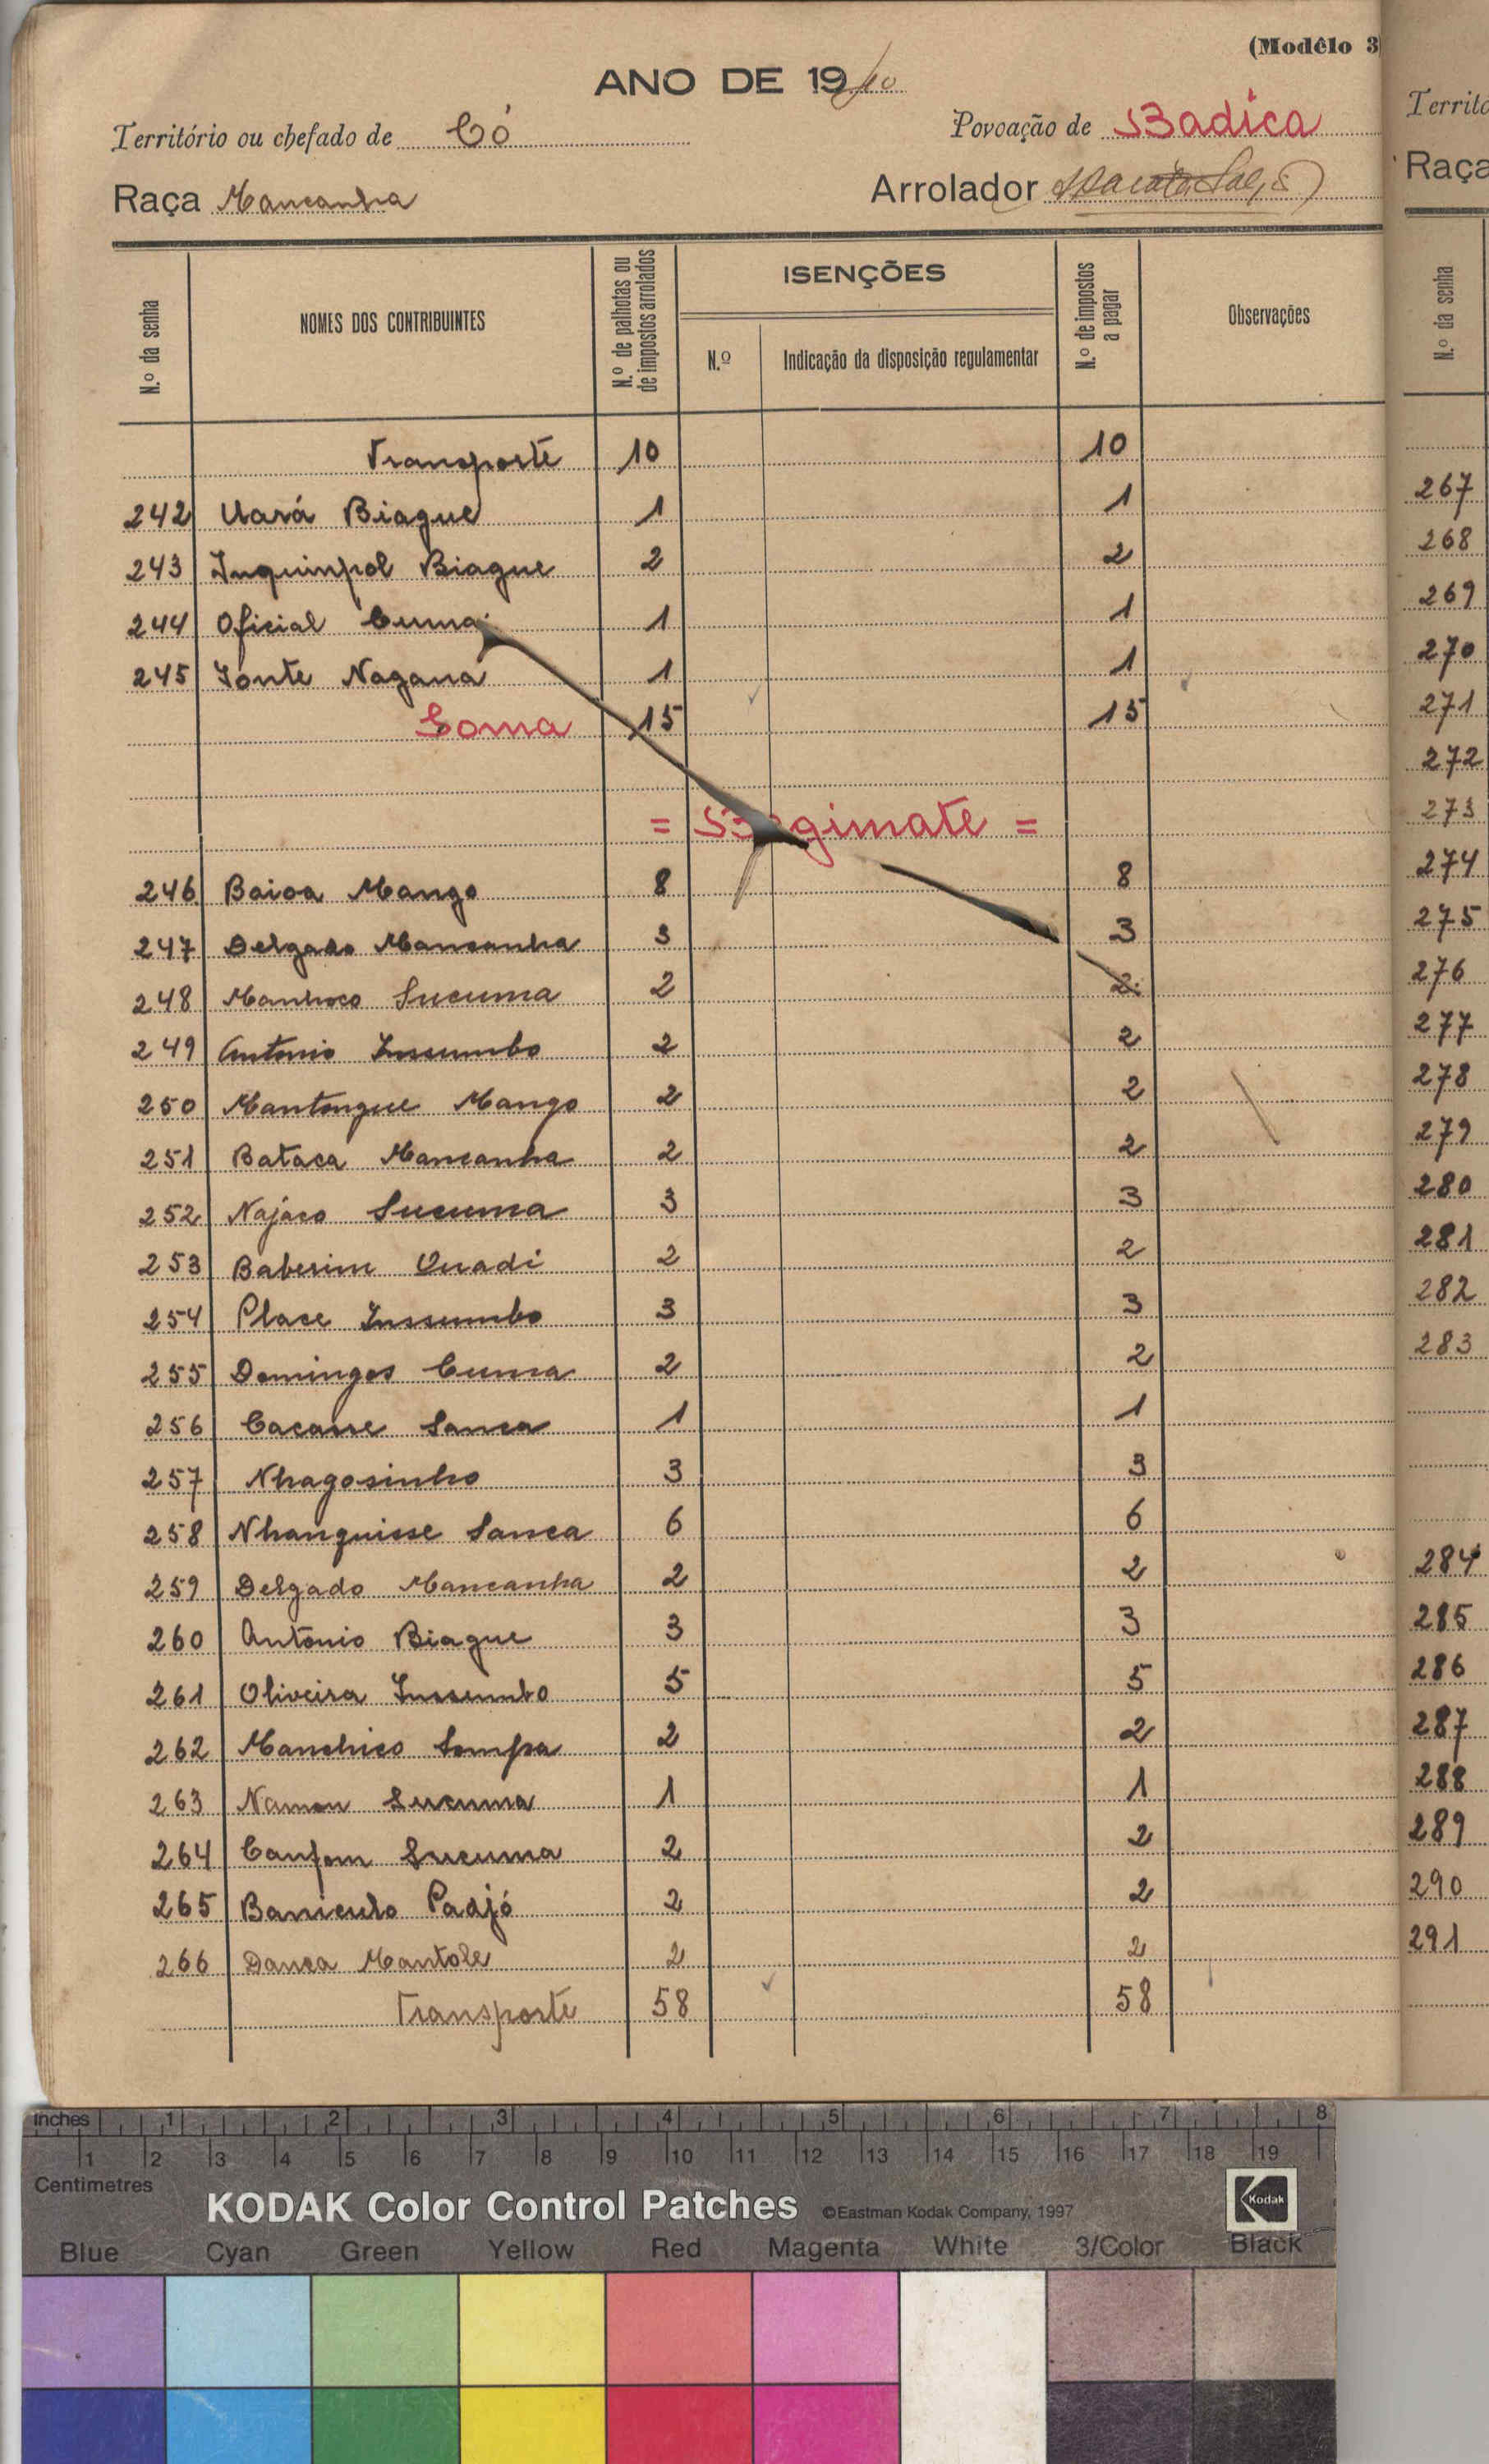 (Modêlo 3
ANO DE 1940
Território ou chefado de Có
Povoação de Badica
Raça Mancanha
Arrolador
N.º da senha
NOMES DOS CONTRIBUINTES
N.º de palhotas ou de impostos arrolados
ISENÇÕES
N.º
Indicação da disposição regulamentar
N.º de impostos a pagar
Observações
Transporte 10 10
242 Uará Biague 1 1
243 Inquimpol Biague 2 2
244 Oficial Cuma 1 1
245 Fonte Nagana 1 1
Soma 15 15
= Begimate =
246 Baioa Mango 8 8
247 Delgado Mancanha 3 3
248 Manhoco Sucuma 2 2
249 Antonio Insumbo 2 2
250 Mantongue Mango 2 2
251 Bataca Mancanha 2 2
252 Najaco Sucuma 3 3
253 Baberim Quadi 2 2
254 Place Inssumbo 3 3
255 Domingos Cuma 2 2
256 Cacasse Sanca 1 1
257 Nhagosinho 3 3
258 Nhanquisse Sanca 6 6
259 Delgado Mancanha 2 2
260 Antonio Biague 3 3
261 Oliveira Inssumbo 5 5
262 Manchico Sompa 2 2
263 Namon Sucuma 1 1
264 Canfom Sucuma 2 2
265 Baniculo Padjó 2 2
266 Danca Mantole 2 2
Transporte 58 58
Territó
Raça
N.º da senha
267
268
269
270
271
272
273
274
275
276
277
278
279
280
281
282
283
284
285
286
287
288
289
290
291
inches 1 2 3 4 5 6 7 8
1 2 3 4 5 6 7 8 9 10 11 12 13 14 15 16 17 18 19
Centimetres
KODAK Color Control Patches ©Eastman Kodak Company, 1997 Kodak
Blue Cyan Green Yellow Red Magenta White 3/Color Black